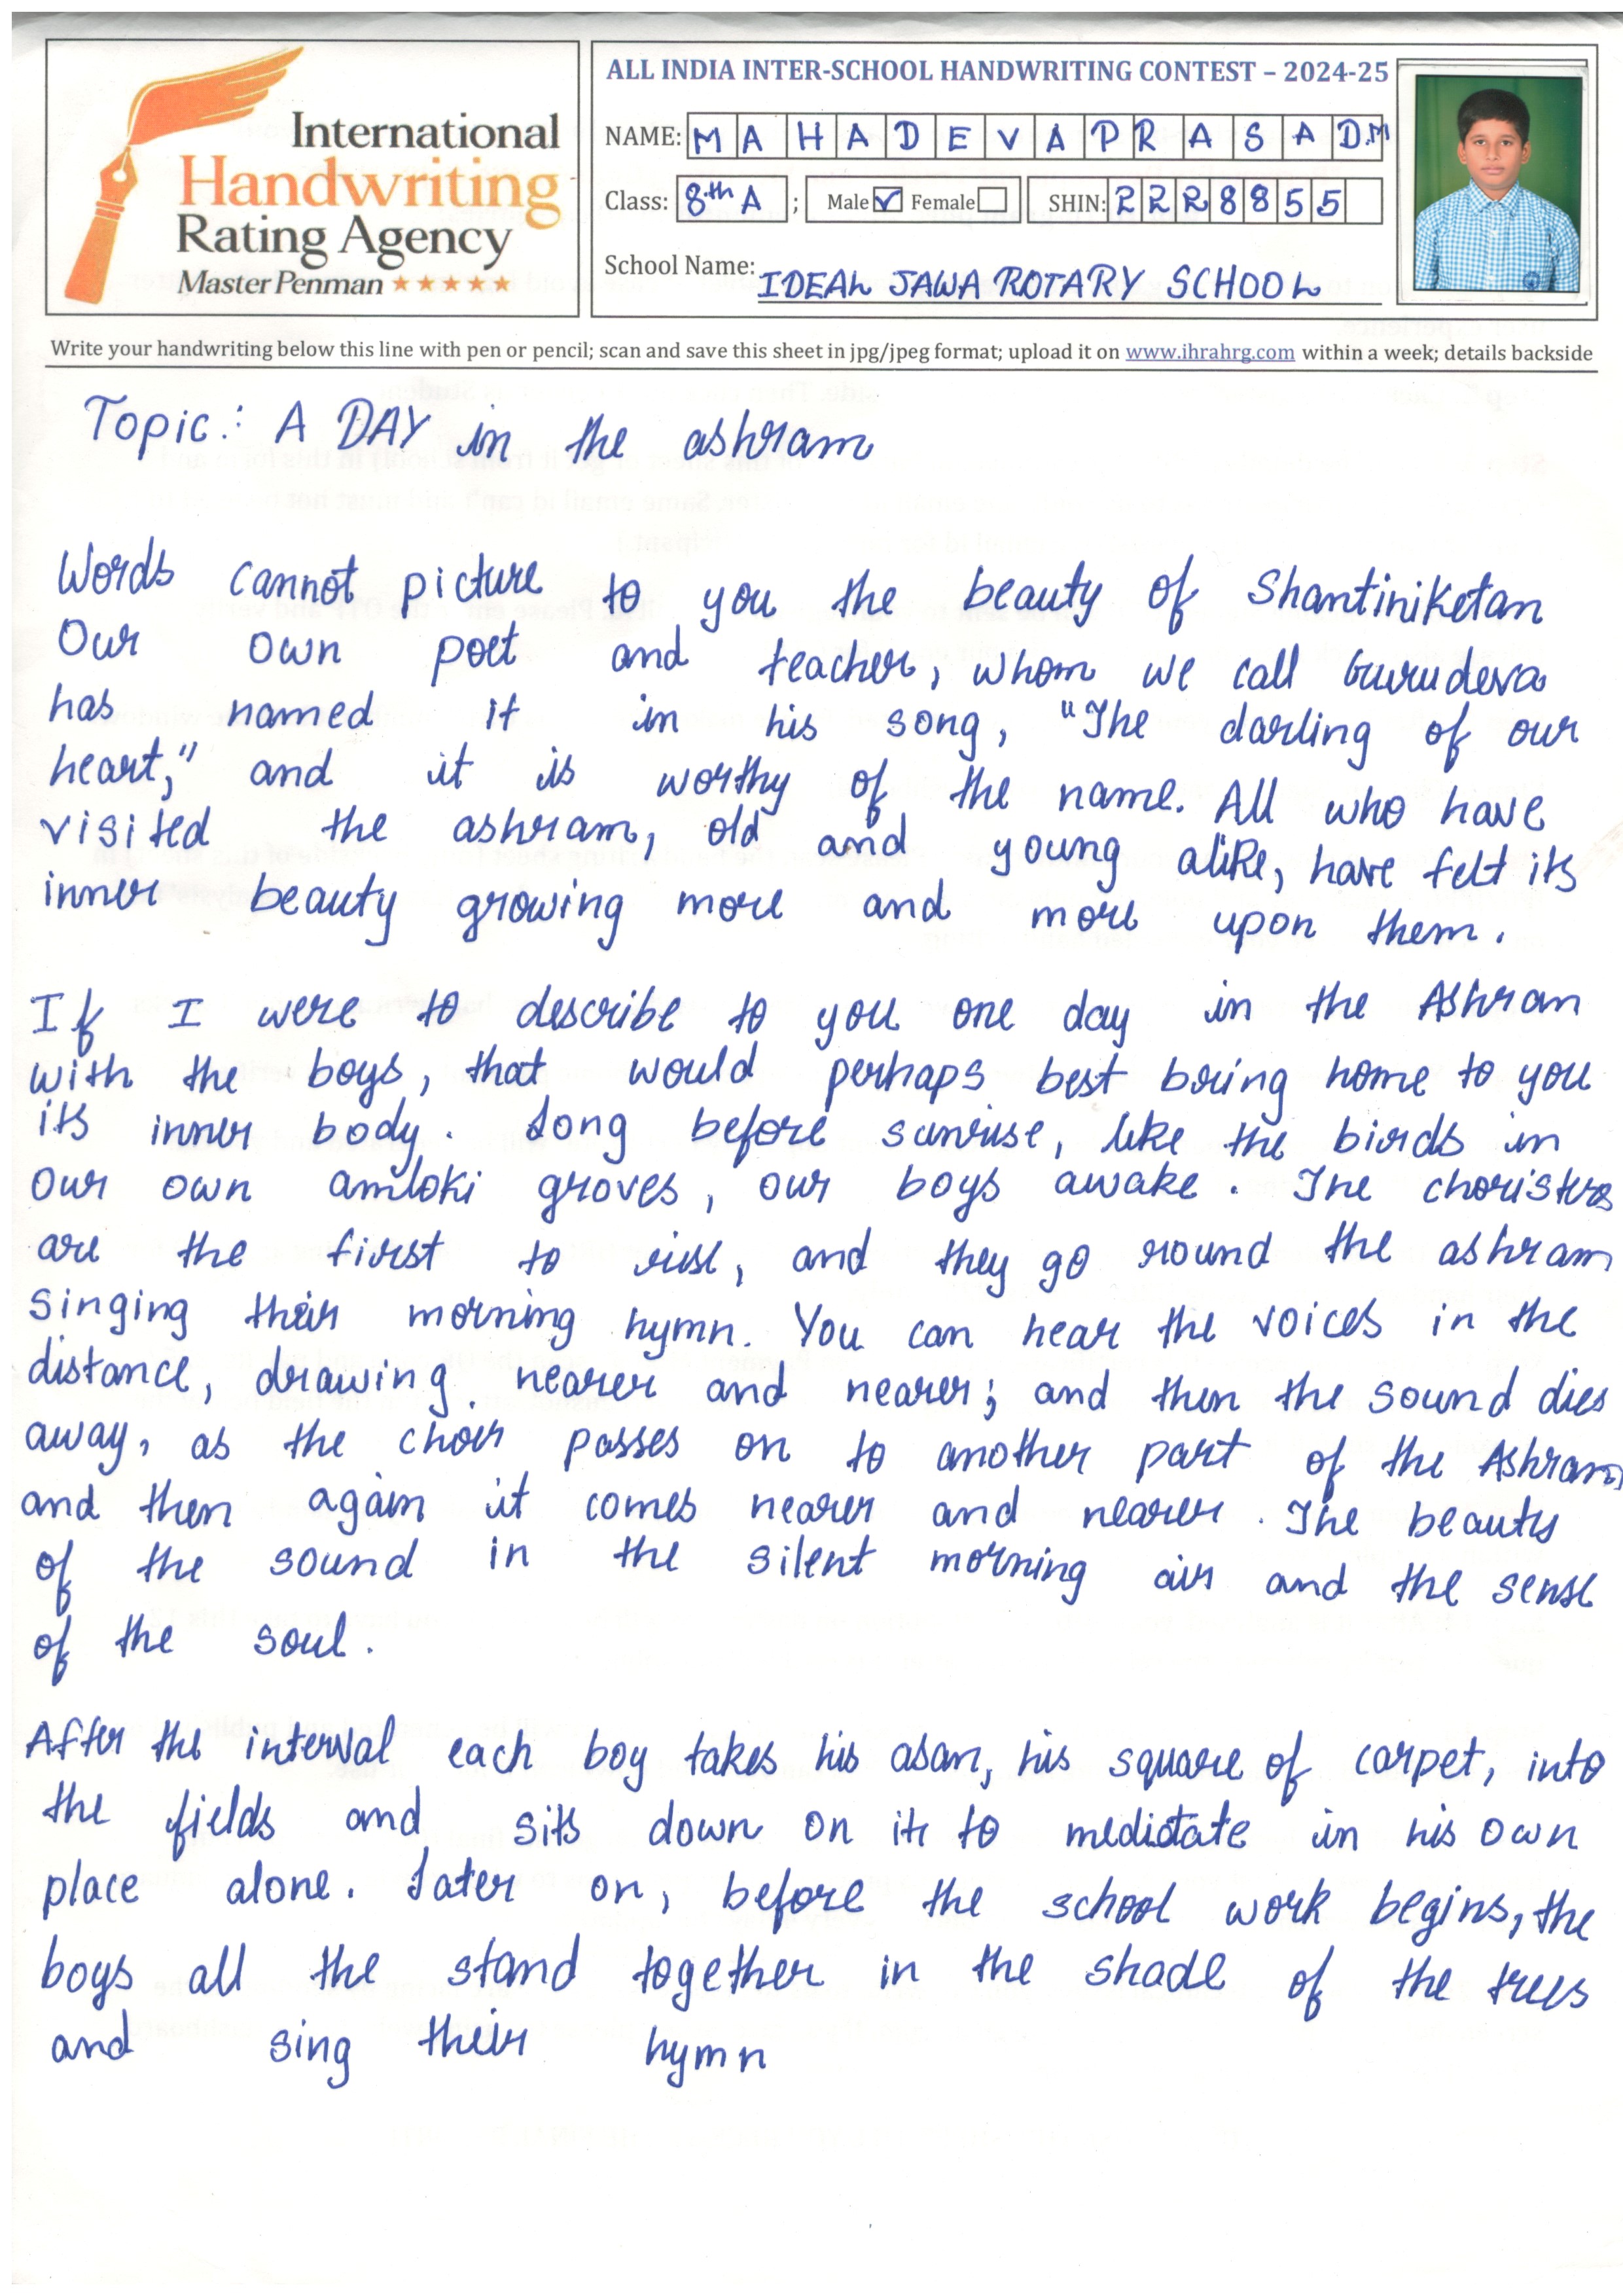 International
Handwriting
Rating Agency
Master Penman ★★★★★
ALL INDIA INTER-SCHOOL HANDWRITING CONTEST – 2024-25
NAME: MAHADEVAPRASAD.M
Class: 8th A ; Male ☑ Female ☐ SHIN: 2228855
School Name: IDEAL JAWA ROTARY SCHOOL
Write your handwriting below this line with pen or pencil; scan and save this sheet in jpg/jpeg format; upload it on www.ihrahrg.com within a week; details backside
Topic: A DAY in the ashram
Words cannot picture to you the beauty of Shantiniketan
Our own poet and teacher, whom we call Gurudeva
has named it in his song, "The darling of our
heart," and it is worthy of the name. All who have
visited the ashram, old and young alike, have felt its
inner beauty growing more and more upon them.
If I were to describe to you one day in the Ashran
with the boys, that would perhaps best bring home to you
its inner body. Long before sunrise, like the birds in
our own amloki groves, our boys awake. The choristers
are the first to rise, and they go round the ashram
singing their morning hymn. You can hear the voices in the
distance, drawing nearer and nearer; and then the sound dies
away, as the choir passes on to another part of the Ashram
and then again it comes nearer and nearer. The beauty
of the sound in the silent morning air and the sense
of the soul.
After the interval each boy takes his asan, his square of carpet, into
the fields and sits down on it to medidate in his own
place alone. Later on, before the school work begins, the
boys all the stand together in the shade of the trees
and sing their hymn